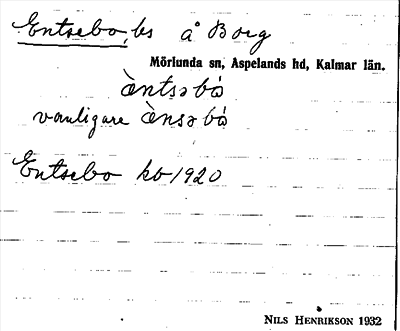 Entsebo, bs å Borg
Mörlunda sn, Aspelands hd, Kalmar län.
èntsəbò
vanligare ènsəbò
Entsebo kb 1920
NILS HENRIKSON 1932